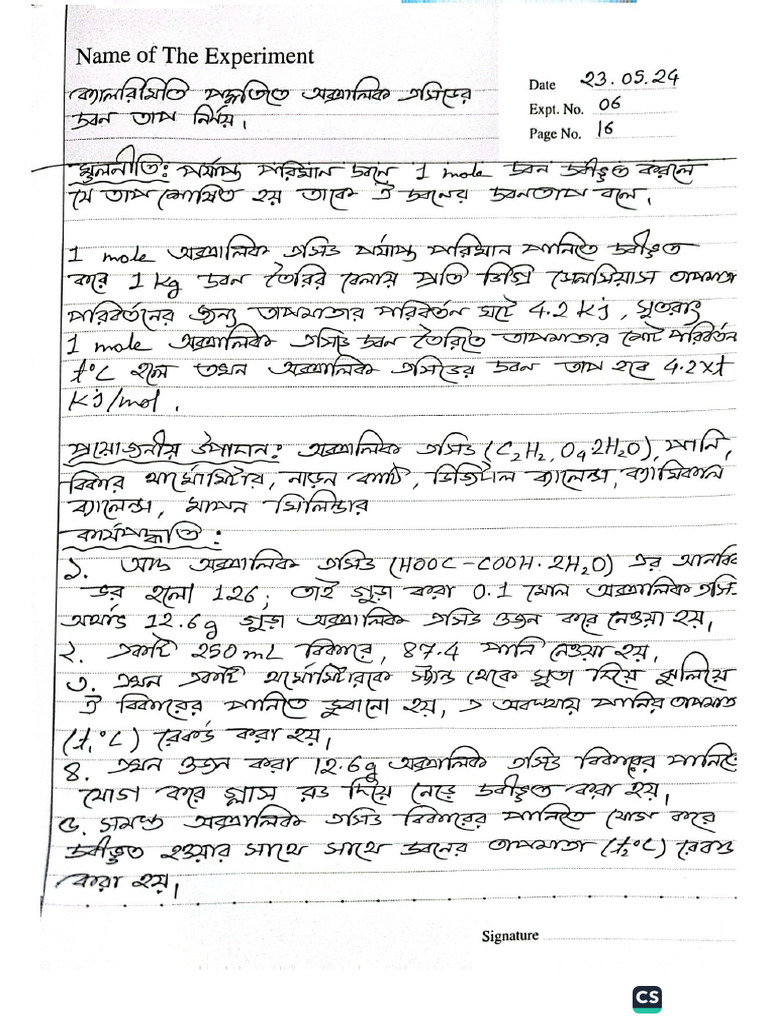 Name of The Experiment
ক্যালরিমিতি পদ্ধতিতে অক্সালিক এসিডের
দ্রবন তাপ নির্নয়।
Date 23.05.24
Expt. No. 06
Page No. 16
মূলনীতি: পর্যাপ্ত পরিমান দ্রবনে 1 mole দ্রবন দ্রবীভূত করলে
যে তাপ শোষিত হয় তাকে ঐ দ্রবনের দ্রবনতাপ বলে।
1 mole অক্সালিক এসিড পর্যাপ্ত পরিমান পানিতে দ্রবীভূত
করে 1 kg দ্রবন তৈরির বেলায় প্রতি ডিগ্রি সেলসিয়াস তাপমাত্রা
পরিবর্তনের জন্য তাপমাত্রার পরিবর্তন ঘটে 4.2 kj, সুতরাং
1 mole অক্সালিক এসিড দ্রবন তৈরিতে তাপমাত্রার মোট পরিবর্তন
t°C হলে তখন অক্সালিক এসিডের দ্রবন তাপ হবে 4.2×t
kj/mol.
প্রয়োজনীয় উপাদান: অক্সালিক এসিড (C₂H₂, O₄ 2H₂O), পানি,
বিকার থার্মোমিটার, নাড়ন কাঠি, ডিজিটাল ব্যালেন্স, ক্যামিকাল
ব্যালেন্স, মাপন সিলিন্ডার
কার্যপদ্ধতি:
১. আদ্র অক্সালিক এসিড (HOOC-COOH.2H₂O) এর আনবিক
ভর হলো 126; তাই গুড়া করা 0.1 মোল অক্সালিক এসি
অর্থাৎ 12.6g গুড়া অক্সালিক এসিড ওজন করে নেওয়া হয়।
২. একটি 250 mL বিকারে, 87.4 পানি নেওয়া হয়।
৩. এখন একটি থার্মোমিটারকে স্ট্যান্ড থেকে সুতা দিয়ে ঝুলিয়ে
ঐ বিকারের পানিতে ডুবানো হয়, এ অবস্থায় পানির তাপমাত্রা
(t₁°C) রেকর্ড করা হয়।
৪. এখন ওজন করা 12.6g অক্সালিক এসিড বিকারের পানিতে
যোগ করে গ্লাস রড দিয়ে নেড়ে দ্রবীভূত করা হয়।
৫. সমস্ত অক্সালিক এসিড বিকারের পানিতে যোগ করে
দ্রবীভূত হওয়ার সাথে সাথে দ্রবনের তাপমাত্রা (t₂°C) রেকর্ড
করা হয়।
Signature
CS